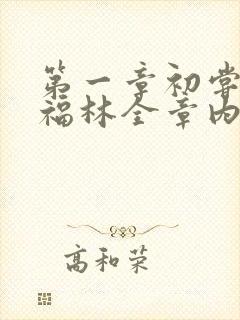 第一章初尝
福林全章内
高和荣